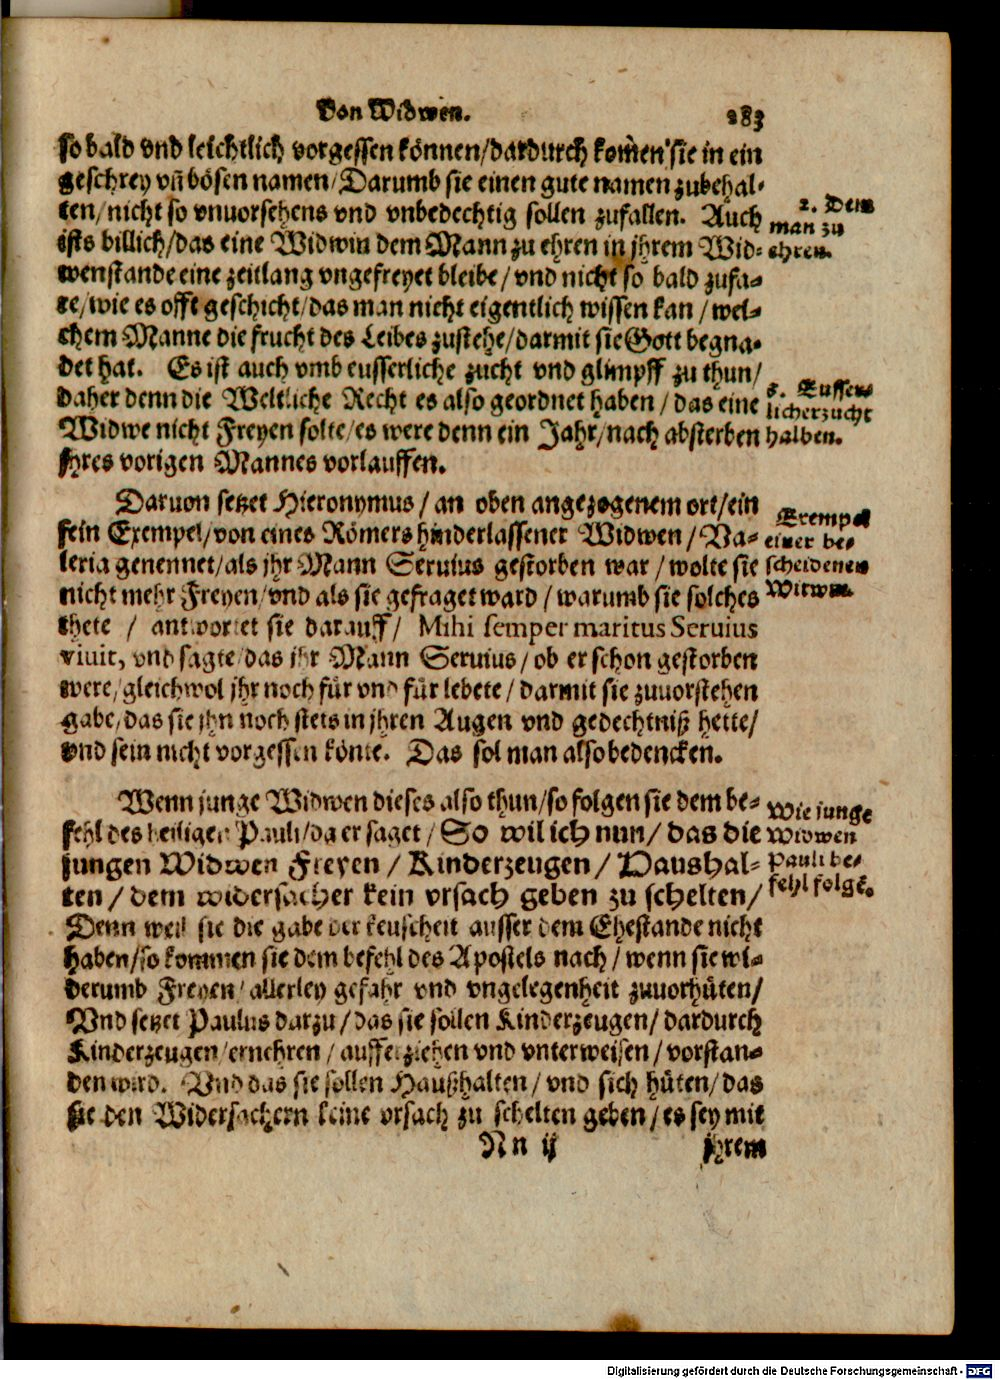 Von Widwen. 283
so bald vnd leichtlich vorgessen können/dardurch kom̃en sie in ein
geschrey vñ bösen namen/Darumb sie einen gute namen zubehal-
ten/nicht so vnuorsehens vnd vnbedechtig sollen zufallen. Auch
ists billich/das eine Widwin dem Mann zu ehren in jhrem Wid-
wenstande eine zeitlang vngefreyet bleibe/vnd nicht so bald zufa-
re/wie es offt geschicht/das man nicht eigentlich wissen kan/wel-
chem Manne die frucht des Leibes zustehe/darmit sie Gott begna-
det hat. Es ist auch vmb eusserliche zucht vnd glimpff zu thun/
daher denn die Weltliche Recht es also geordnet haben/das eine
Widwe nicht Freyen solte/es were denn ein Jahr/nach absterben
jhres vorigen Mannes vorlauffen.
2. Dem
man zu
ehren.
3. Eussen
licher zucht
halben.
Daruon setzet Hieronymus/an oben angezogenem ort/ein
fein Exempel/von eines Römers hinderlassener Widwen/Va-
leria genennet/als jhr Mann Seruius gestorben war/wolte sie
nicht mehr Freyen/vnd als sie gefraget ward/warumb sie solches
thete / antwortet sie darauff/ Mihi semper maritus Seruius
viuit, vnd sagte/das jhr Mann Seruius/ob er schon gestorben
were/gleichwol jhr noch für vnd für lebete/darmit sie zuuorstehen
gabe/das sie jhn noch stets in jhren Augen vnd gedechtniß hette/
vnd sein nicht vorgessen könte. Das sol man also bedencken.
Exempel
einer be-
scheidenen
Witwin.
Wenn junge Widwen dieses also thun/so folgen sie dem be-
fehl des heiligen Pauli/da er saget/So wil ich nun/das die
jungen Widwen Freyen/Kinderzeugen/Haushal-
ten/dem widersacher kein vrsach geben zu schelten/
Denn weil sie die gabe der keuscheit ausser dem Ehestande nicht
haben/so kommen sie dem befehl des Apostels nach/wenn sie wi-
derumb Freyen/allerley gefahr vnd vngelegenheit zuuorhüten/
Vnd setzet Paulus darzu/das sie sollen Kinderzeugen/dardurch
Kinderzeugen/ernehren/aufferziehen vnd vnterweisen/vorstan-
den wird. Vnd das sie sollen Haußhalten/vnd sich hüten/das
sie den Widersachern keine vrsach zu schelten geben/es sey mit
Wie junge
Widwen
Pauli be-
fehl folge.
Nn ij jhrem
Digitalisierung gefördert durch die Deutsche Forschungsgemeinschaft - DFG